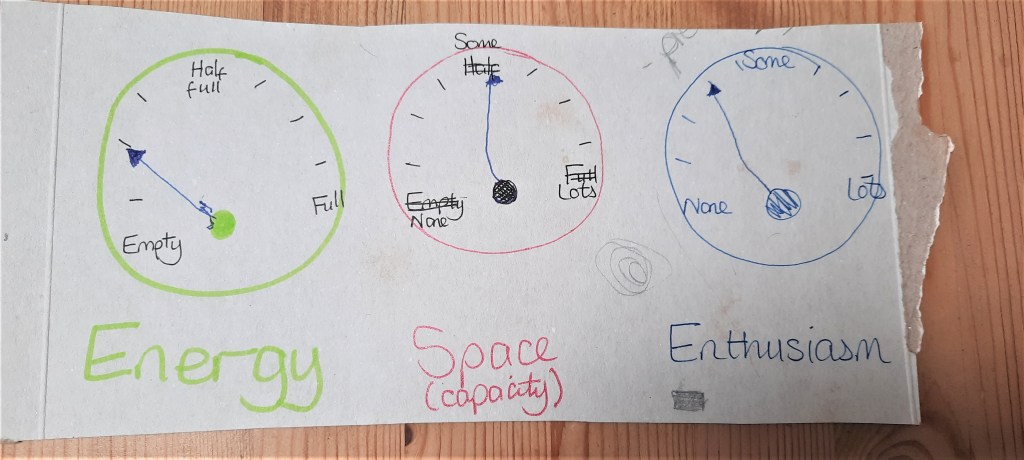 Half
full
Empty
Full
Energy
Some
Half
Empty
None
Full
Lots
Space
(capacity)
Some
None
Lots
Enthusiasm